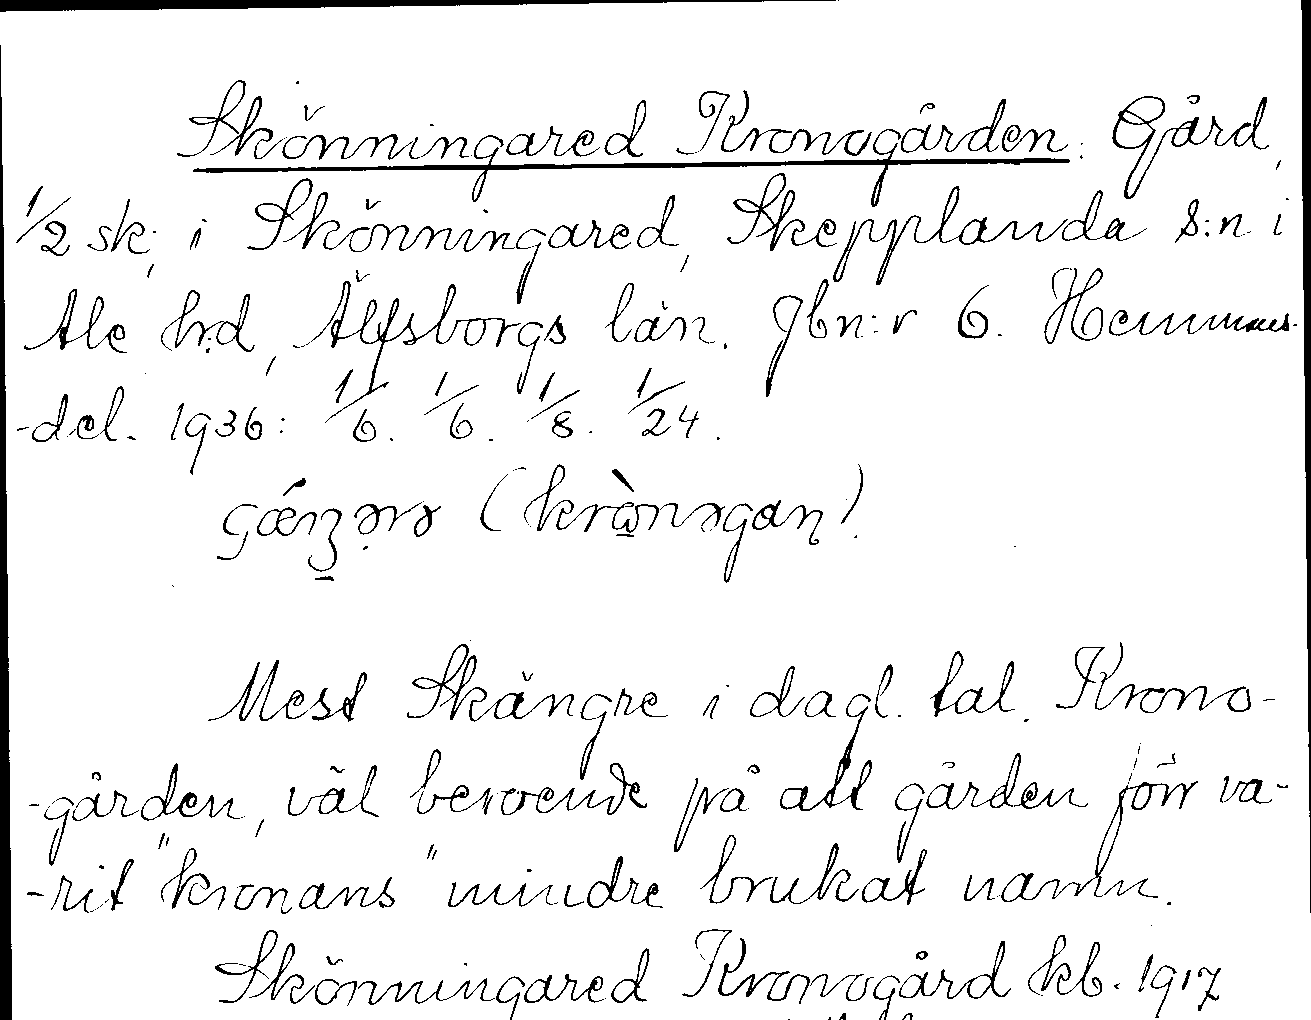 Skönningared Kronogården. Gård,
1/2 sk; i Skönningared, Skepplanda s:n i
Ale h:d, Älfsborgs län. Jbn:r 6. Hemmans-
-del. 1936: 1/6. 1/6. 1/8. 1/24.
Mest Skängre i dagl. tal. Krono-
-gården, väl beroende på att gården förr va-
-rit "kronans" mindre brukat namn.
Skönningared Kronogård kb. 1917